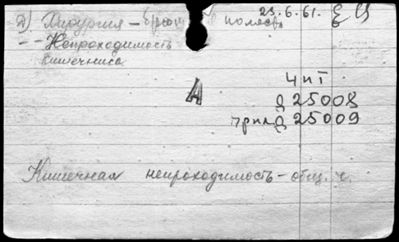 Я) Хирургия – Брюшн полость 23.6.61. ЕЦ
-- Непроходимость
кишечника
ЧиТ
А Д 25008
трид Д 25009
Кишечная непроходимость – общ. ч.